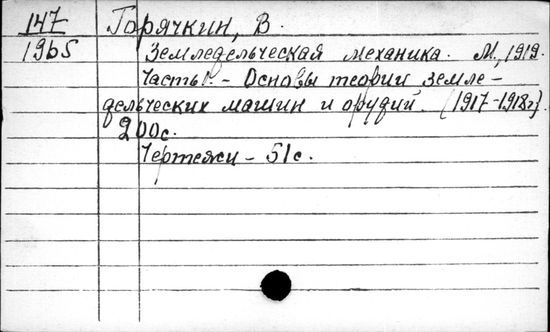 147 Горячкин, В.
1965 Земледельческая механика. М., 1919.
Часть I. - Основы теории земле-
дельческих машин и орудий. (1917-1918г).
200с.
Чертежи - 51с.